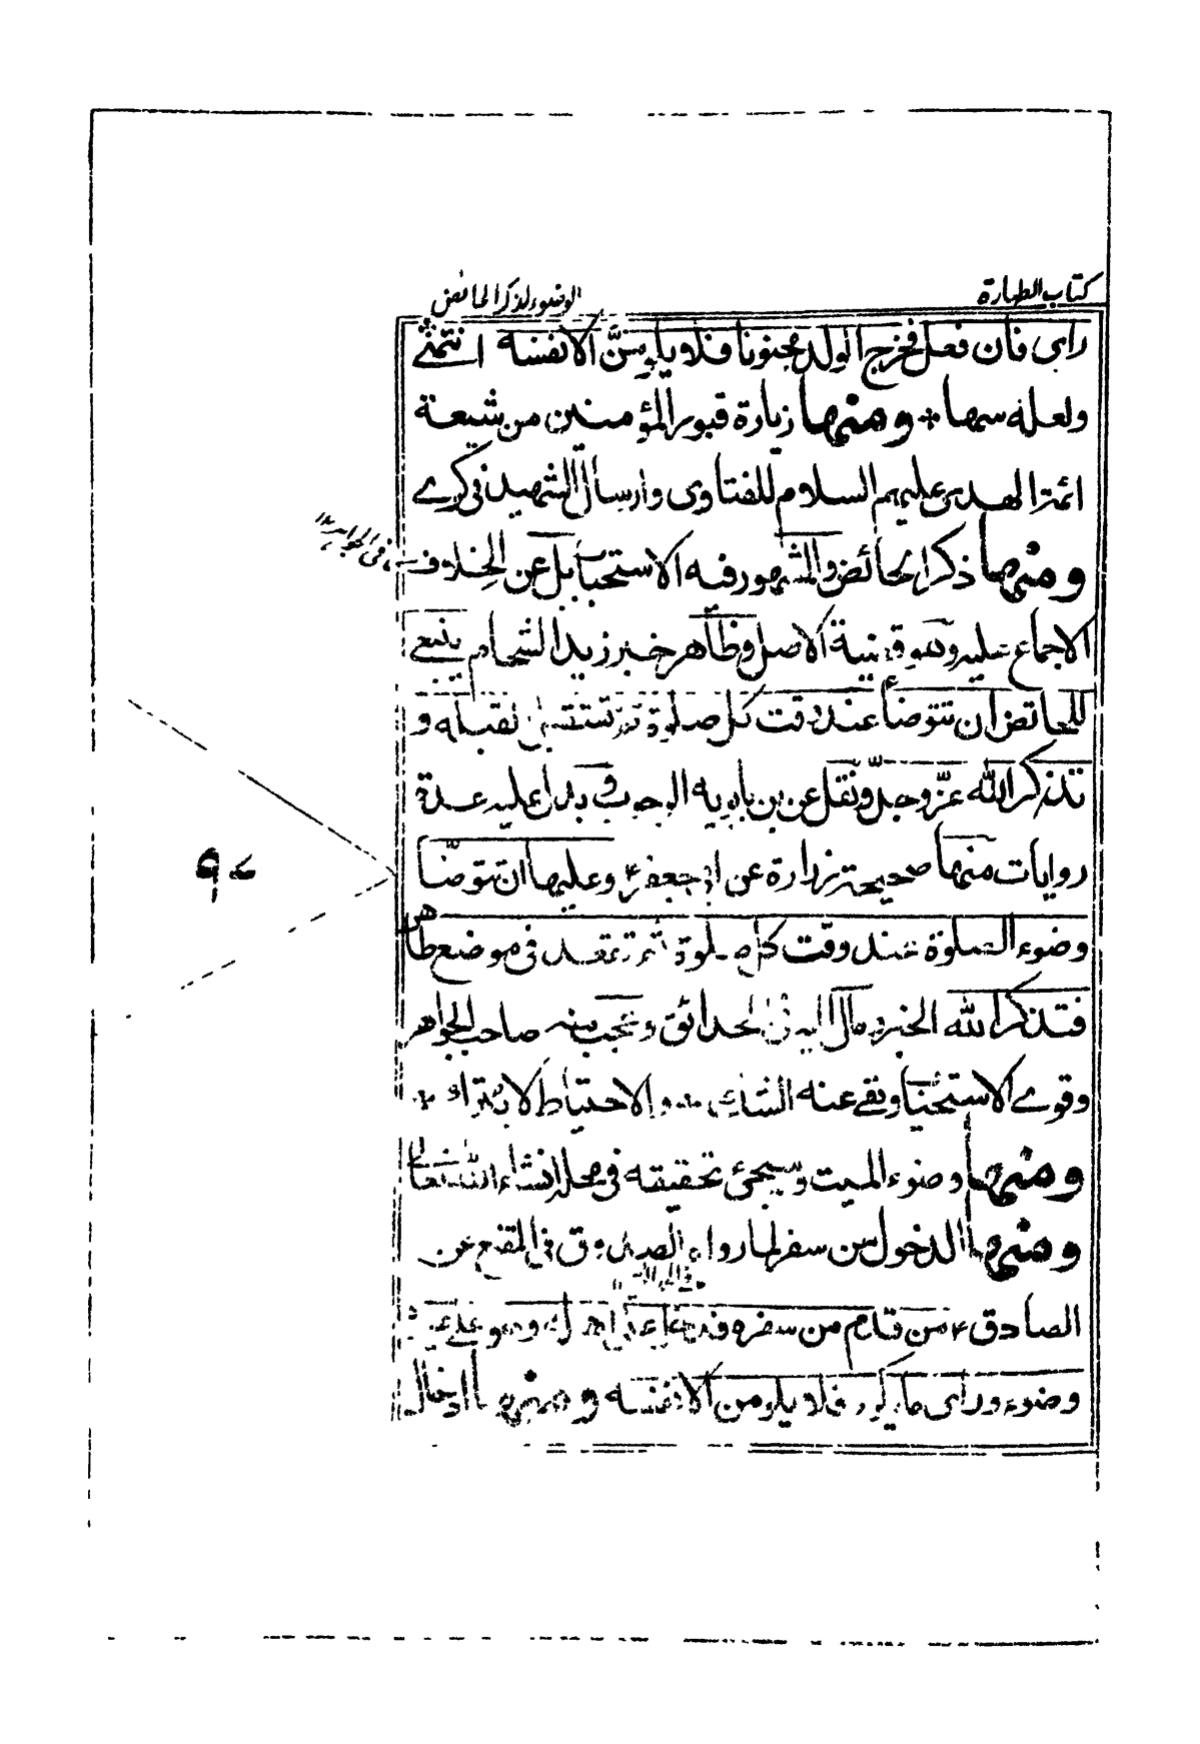 كتاب الطهارة
الوضوء لذكر الحائض
رأى فان فعل فخرج الولد مجنونا فلا يلومنّ الا نفسه انتهى
ولعله سها * ومنها زيارة قبور المؤمنين من شيعة
ائمة الهدى عليهم السلام للفتاوى وارسال الشهيد فى كرے
ومنها ذكر الحائض والمشهور فيه الاستحباب بل عن الخلاف
الاجماع عليه وهو قضية الاصل وظاهر خبر زيد الشحام ينبغى
للحائض ان تتوضأ عند وقت كل صلوة ثم تستقبل القبلة و
تذكر الله عزّ وجلّ ونقل عن بن بابويه الوجوب و يدل عليه عدة
روايات منها صحيحة زرارة عن ابى جعفر ع وعليها ان تتوضّأ
وضوء الصلوة عند وقت كل صلوة ثم تقعد فى موضع طاهر
فتذكر الله الخبر ومال اليه فى الحدائق وعجب منه صاحب الجواهر
وقوى الاستحباب ونفى عنه الشك والاحتياط لا يترك *
ومنها وضوء الميت وسيجئ تحقيقه فى محله انشاء الله تعالى
ومنها الدخول من سفر لما رواه الصدوق فى المقنع عن
الصادق ع من قدم من سفره فدخل على اهله وهو على غير
وضوء وراى ما يكره فلا يلومن الا نفسه ومنها ادخال
٩٠